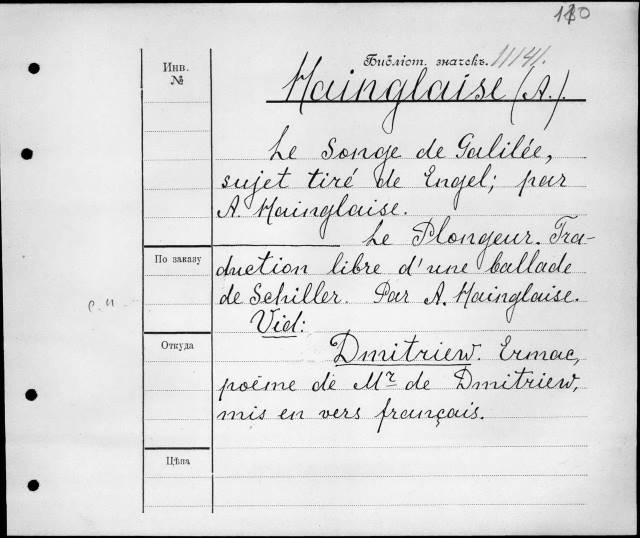 180
Инв.
№
Библіот. значекъ 11141.
Mainglaise (A.).
Le Songe de Galilée,
sujet tiré de Engel; par
A. Mainglaise.
Le Plongeur. Tra-
duction libre d'une ballade
de Schiller. Par A. Mainglaise.
Vid:
Dmitriew. Ermac,
poëme de Mr de Dmitriew,
mis en vers français.
По заказу
Откуда
Цѣна